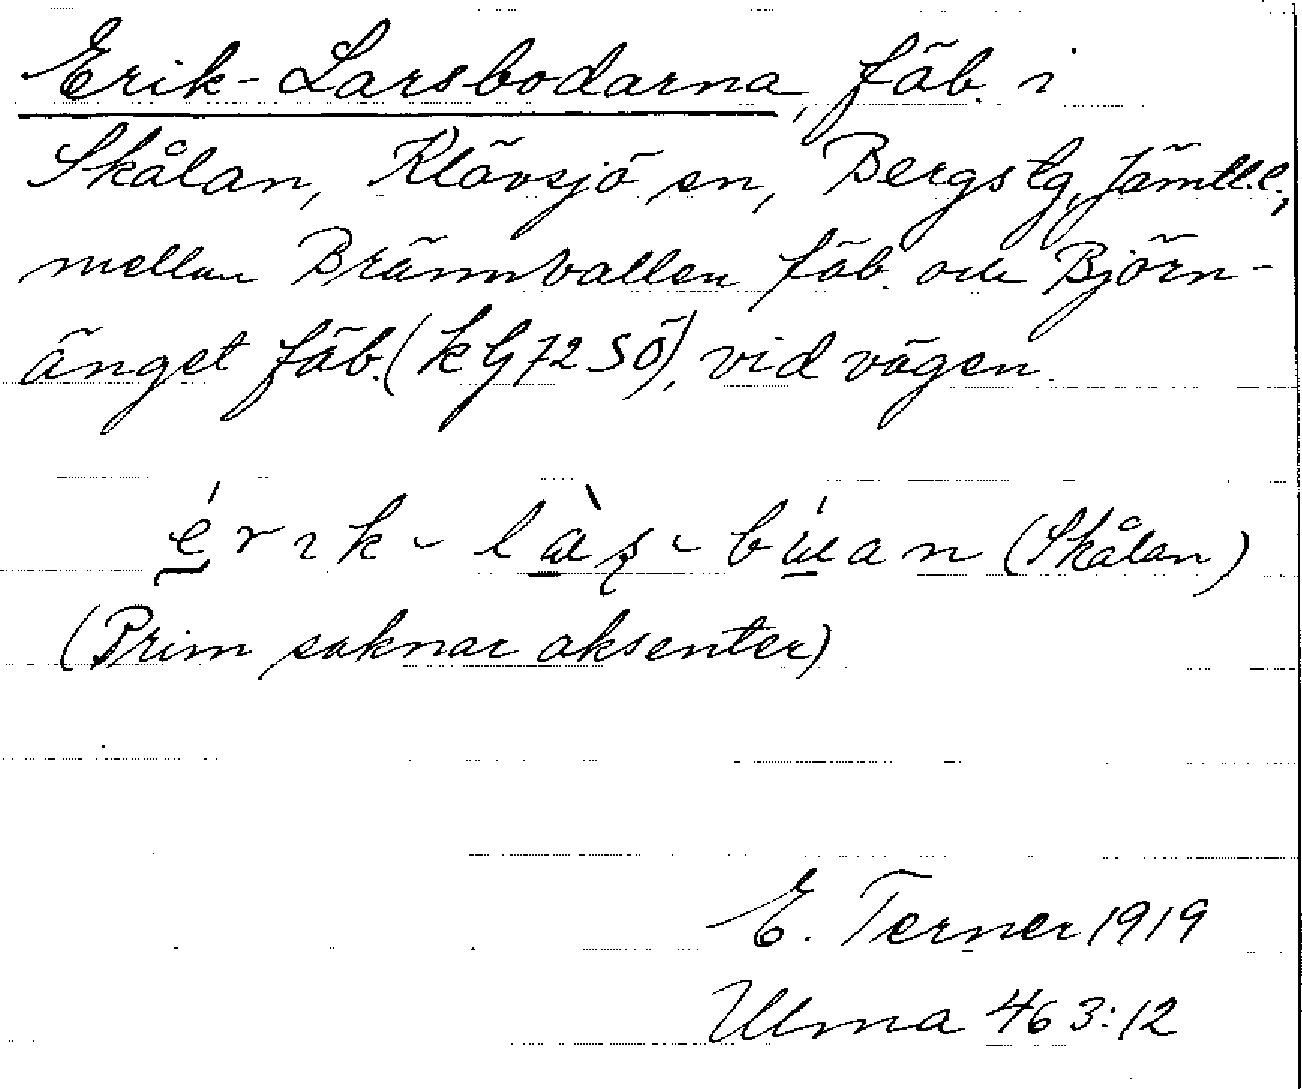 Erik-Larsbodarna, fäb. i
Skålan, Klövsjö sn, Bergs tg, Jämtl. l.,
mellan Brännvallen fäb. och Björn-
änget fäb. (kG 72 SÖ), vid vägen.
é̱rɩk-lɯ̱̀ʂ-bɯ̱́an (Skålan)
(Prim saknar aksenter)
E. Terner 1919
Ulma 463:12